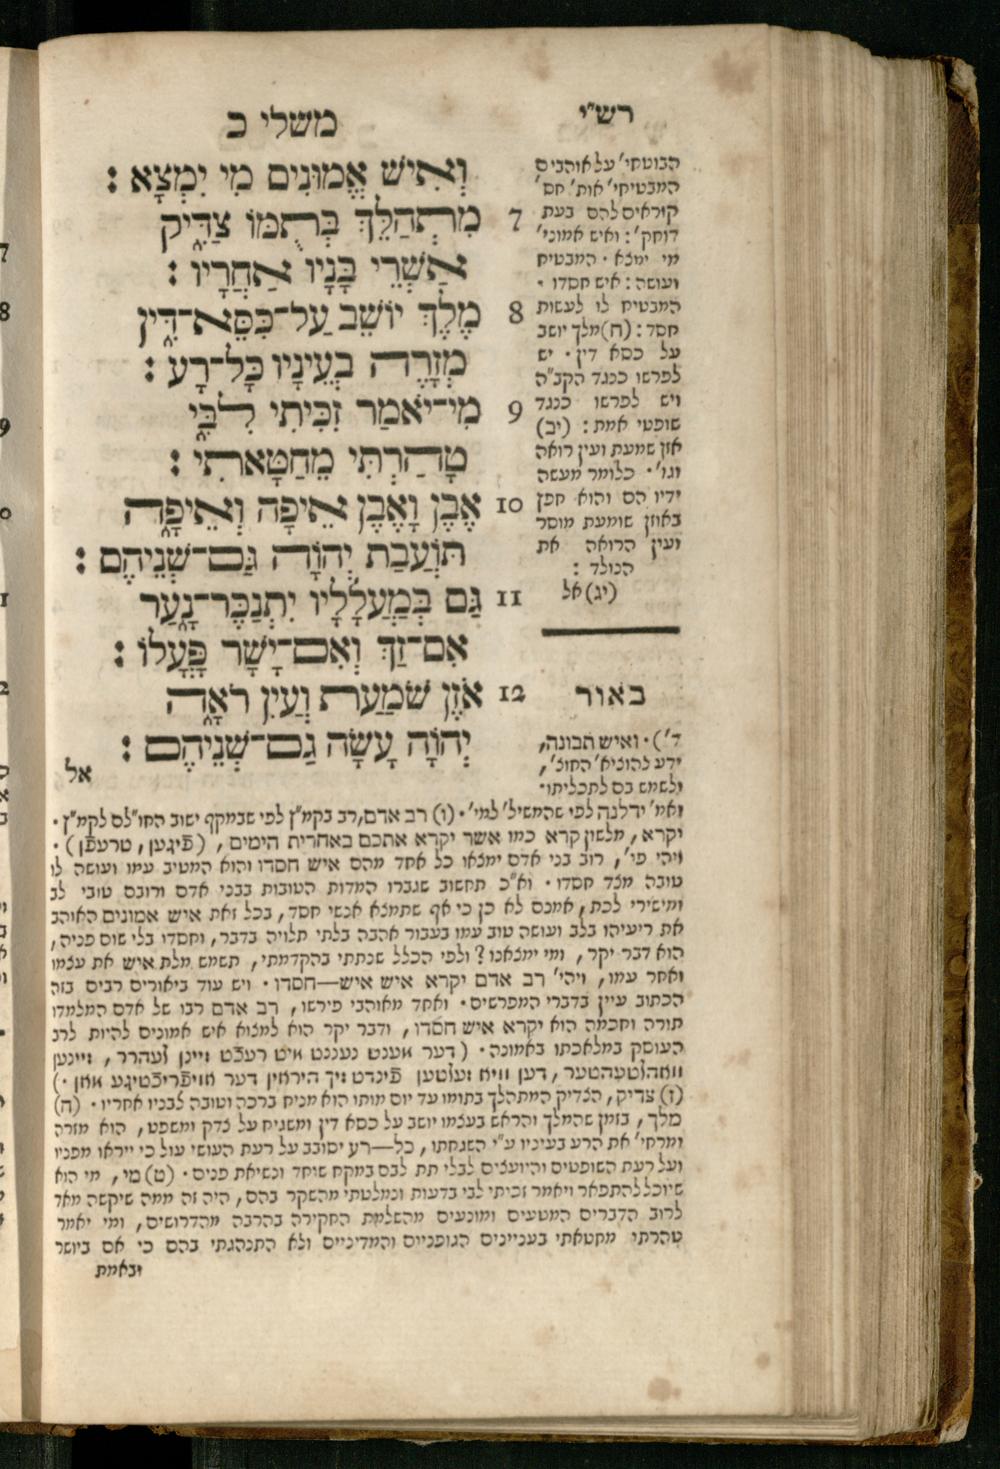 רש״י
משלי כ
וְאִישׁ אֱמוּנִים מִי יִמְצָא :
7 מִתְהַלֵּךְ בְּתֻמּוֹ צַדִּיק
אַשְׁרֵי בָּנָיו אַחֲרָיו :
8 מֶלֶךְ יוֹשֵׁב עַל־כִּסֵּא־דִין
מְזָרֶה בְעֵינָיו כָּל־רָע :
9 מִי־יֹאמַר זִכִּיתִי לִבִּי
טָהַרְתִּי מֵחַטָּאתִי :
10 אֶבֶן וָאֶבֶן אֵיפָה וְאֵיפָה
תּוֹעֲבַת יְהוָֹה גַּם־שְׁנֵיהֶם :
11 גַּם בְּמַעֲלָלָיו יִתְנַכֶּר־נָעַר
אִם־זַךְ וְאִם־יָשָׁר פָּעֳלוֹ :
12 אֹזֶן שֹׁמַעַת וְעַיִן רֹאָה
יְהוָֹה עָשָׂה גַם־שְׁנֵיהֶם :
אל
הבוטחי׳ על אוהבים
המבטיחי׳ אות׳ חס׳
קוראים להם בעת
דוחק׳ : ואיש אמוני׳
מי ימצא · המבטיח
ועושה : איש חסדו ·
המבטיח לו לעשות
חסד : (ח) מלך יושב
על כסא דין · יש
לפרשו כנגד הקב״ה
ויש לפרשו כנגד
שופטי אמת : (יב)
אזן שמעת ועין רואה
וגו׳ · כלומר מעשה
ידיו הם והוא חפץ
באוזן שומעת מוסר
ועין הרואה את
הנולד :
(יג) אל
באור
ד׳) · ואיש תבונה,
ידע להוציא׳ החוצ׳,
ולשמש בם לתכליתו ·
ואמ׳ ידלנה לפי שהמשיל׳ למי׳ · (ו) רב אדם, רב בקמ״ץ לפי שבמקף ישוב החו״לם לקמ״ץ ·
יקרא, מלשון קרא כמו אשר יקרא אתכם באחרית הימים, (פֿיגען, טרעפֿן) ·
ויהי פי׳, רוב בני אדם ימצאו כל אחד מהם איש חסדו והוא המטיב עמו ועושה לו
טובה מצד חסדו · וא״כ תחשוב שגברו המדות הטובות בבני אדם ורובם טובי לב
ומישירי לכת, אמנם לא כן כי אף שתמצא אנשי חסד, בכל זאת איש אמונים האוהב
את ריעיהו בלב ועושה טוב עמו בעבור אהבה בלתי תלויה בדבר, וחסדו בלי שום פניה,
הוא דבר יקר, ומי ימצאנו ? ולפי הכלל שנתתי בהקדמתי, תשמש מלת איש את עצמו
ואחר עמו, ויהי׳ רב אדם יקרא איש איש—חסדו · ויש עוד ביאורים רבים בזה
הכתוב עיין בדברי המפרשים · ואחד מאוהבי פירשו, רב אדם רבו של אדם המלמדו
תורה וחכמה הוא יקרא איש חסדו, ודבר יקר הוא למצוא איש אמונים להיות לרב
העוסק במלאכתו באמונה · (דער מענט נעננט מיט רעכֿט זיינן לעהרר, זיינען
וואהלטעהטער, דען וויא זעלטען פֿינדט זיך היראין דער אויפֿריכֿטיגע מאן ·)
(ז) צדיק, הצדיק המתהלך בתומו עד יום מותו הוא מניח ברכה וטובה לבניו אחריו · (ח)
מלך, בזמן שהמלך והראש בעצמו יושב על כסא דין ומשגיח על צדק ומשפט, הוא מזרה
ומרחי׳ את הרע בעיניו ע״י השגחתו, כל—רע יסובב על רעת העושי עול כי ייראו מפניו
ועל רעת השופטים והיועצים לבלי תת לבם במקח שוחד ונשיאת פנים · (ט) מי, מי הוא
שיוכל להתפאר ויאמר זכיתי לבי בדעות ונמלטתי מהשקר בהם, היה זה ממה שיקשה מאד
לרוב הדברים המטעים ומונעים מהשלמת החקירה בהרבה מהדרושים, ומי יאמר
טהרתי מחטאתי בעניינים הגופניים והמדיניים ולא התנהגתי בהם כי אם ביושר
ובאמת